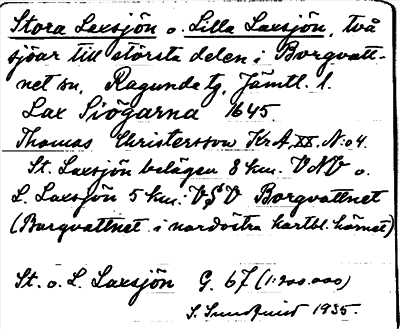 Stora Laxsjön o. Lilla Laxsjön, två
sjöar till största delen i Borgvatt-
net sn, Ragunda tg, Jämtl. l.
Lax Siögarna 1645.
Thomas Christersson KrA, XX. N:o 4.
St. Laxsjön belägen 8 km. VNV o.
L. Laxsjön 5 km. VSV Borgvattnet
(Borgvattnet i nordöstra kartbl. hörnet)
St. o. L. Laxsjön G. 67 (1:200.000)
S. Sundqvist 1935.